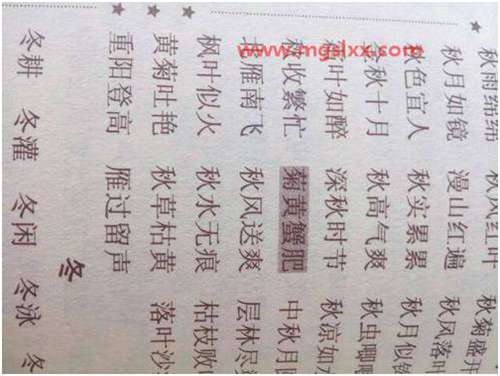 www.mgslxx.com
秋雨绵绵 秋风红叶 秋菊盛开
秋月如镜 漫山红遍 秋风落叶
秋色宜人 秋实累累 秋月似
秋十月 秋高气爽 秋虫唧
叶如醉 深秋时节 秋凉如
秋收繁忙 菊黄蟹肥 中秋月
北雁南飞 秋风送爽 层林尽
枫叶似火 秋水无痕 枯枝败
黄菊吐艳 秋草枯黄 落叶沙
重阳登高 雁过留声
冬
冬耕 冬灌 冬闲 冬泳 冬